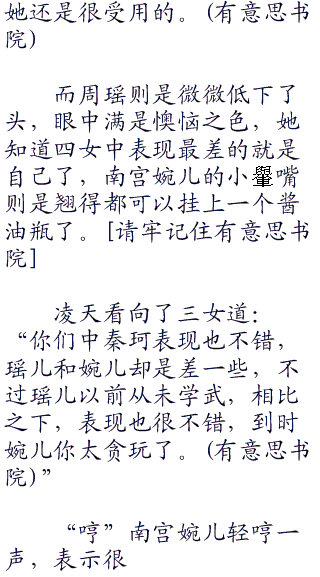 她还是很受用的。(有意思书
院)
而周瑶则是微微低下了
头，眼中满是懊恼之色，她
知道四女中表现最差的就是
自己了，南宫婉儿的小嘴
则是翘得都可以挂上一个酱
油瓶了。[请牢记住有意思书
院]
凌天看向了三女道：
“你们中秦珂表现也不错，
瑶儿和婉儿却是差一些，不
过瑶儿以前从未学武，相比
之下，表现也很不错，到时
婉儿你太贪玩了。(有意思书
院)”
“哼”南宫婉儿轻哼一
声，表示很